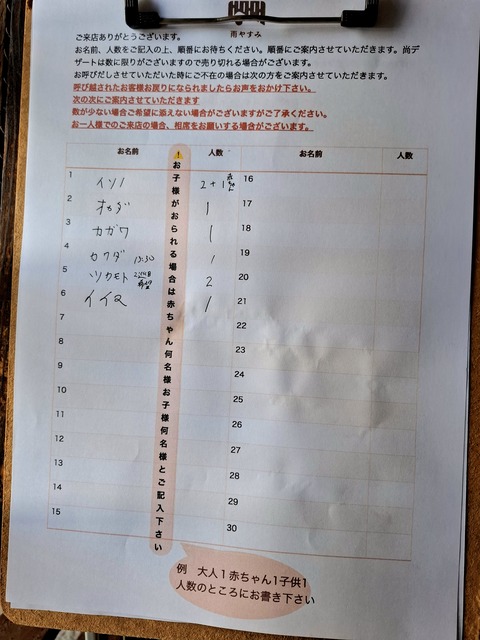 雨やすみ
ご来店ありがとうございます。
お名前、人数をご記入の上、順番にお待ちください。順番にご案内させていただきます。尚デ
ザートは数に限りがございますので売り切れる場合がございます。
お呼びだしさせていただいた時にご不在の場合は次の方をご案内させていただきます。
呼び越されたお客様お戻りになられましたらお声をおかけ下さい。
次の次にご案内させていただきます
数が少ない場合ご希望に添えない場合がございますがご了承ください。
お一人様でのご来店の場合、相席をお願いする場合がございます。
お名前 人数 お名前 人数
お子様がおられる場合は赤ちゃん何名様お子様何名様とご記入下さい
1 イソノ 2+1 赤ちゃん 16
2 オカダ 1 17
3 カガワ 1 18
4 カワダ 15:30 1 19
5 ツカモト 2 20
6 イイヌマ 1 21
7 22
8 23
9 24
10 25
11 26
12 27
13 28
14 29
15 30
例 大人1赤ちゃん1子供1
人数のところにお書き下さい